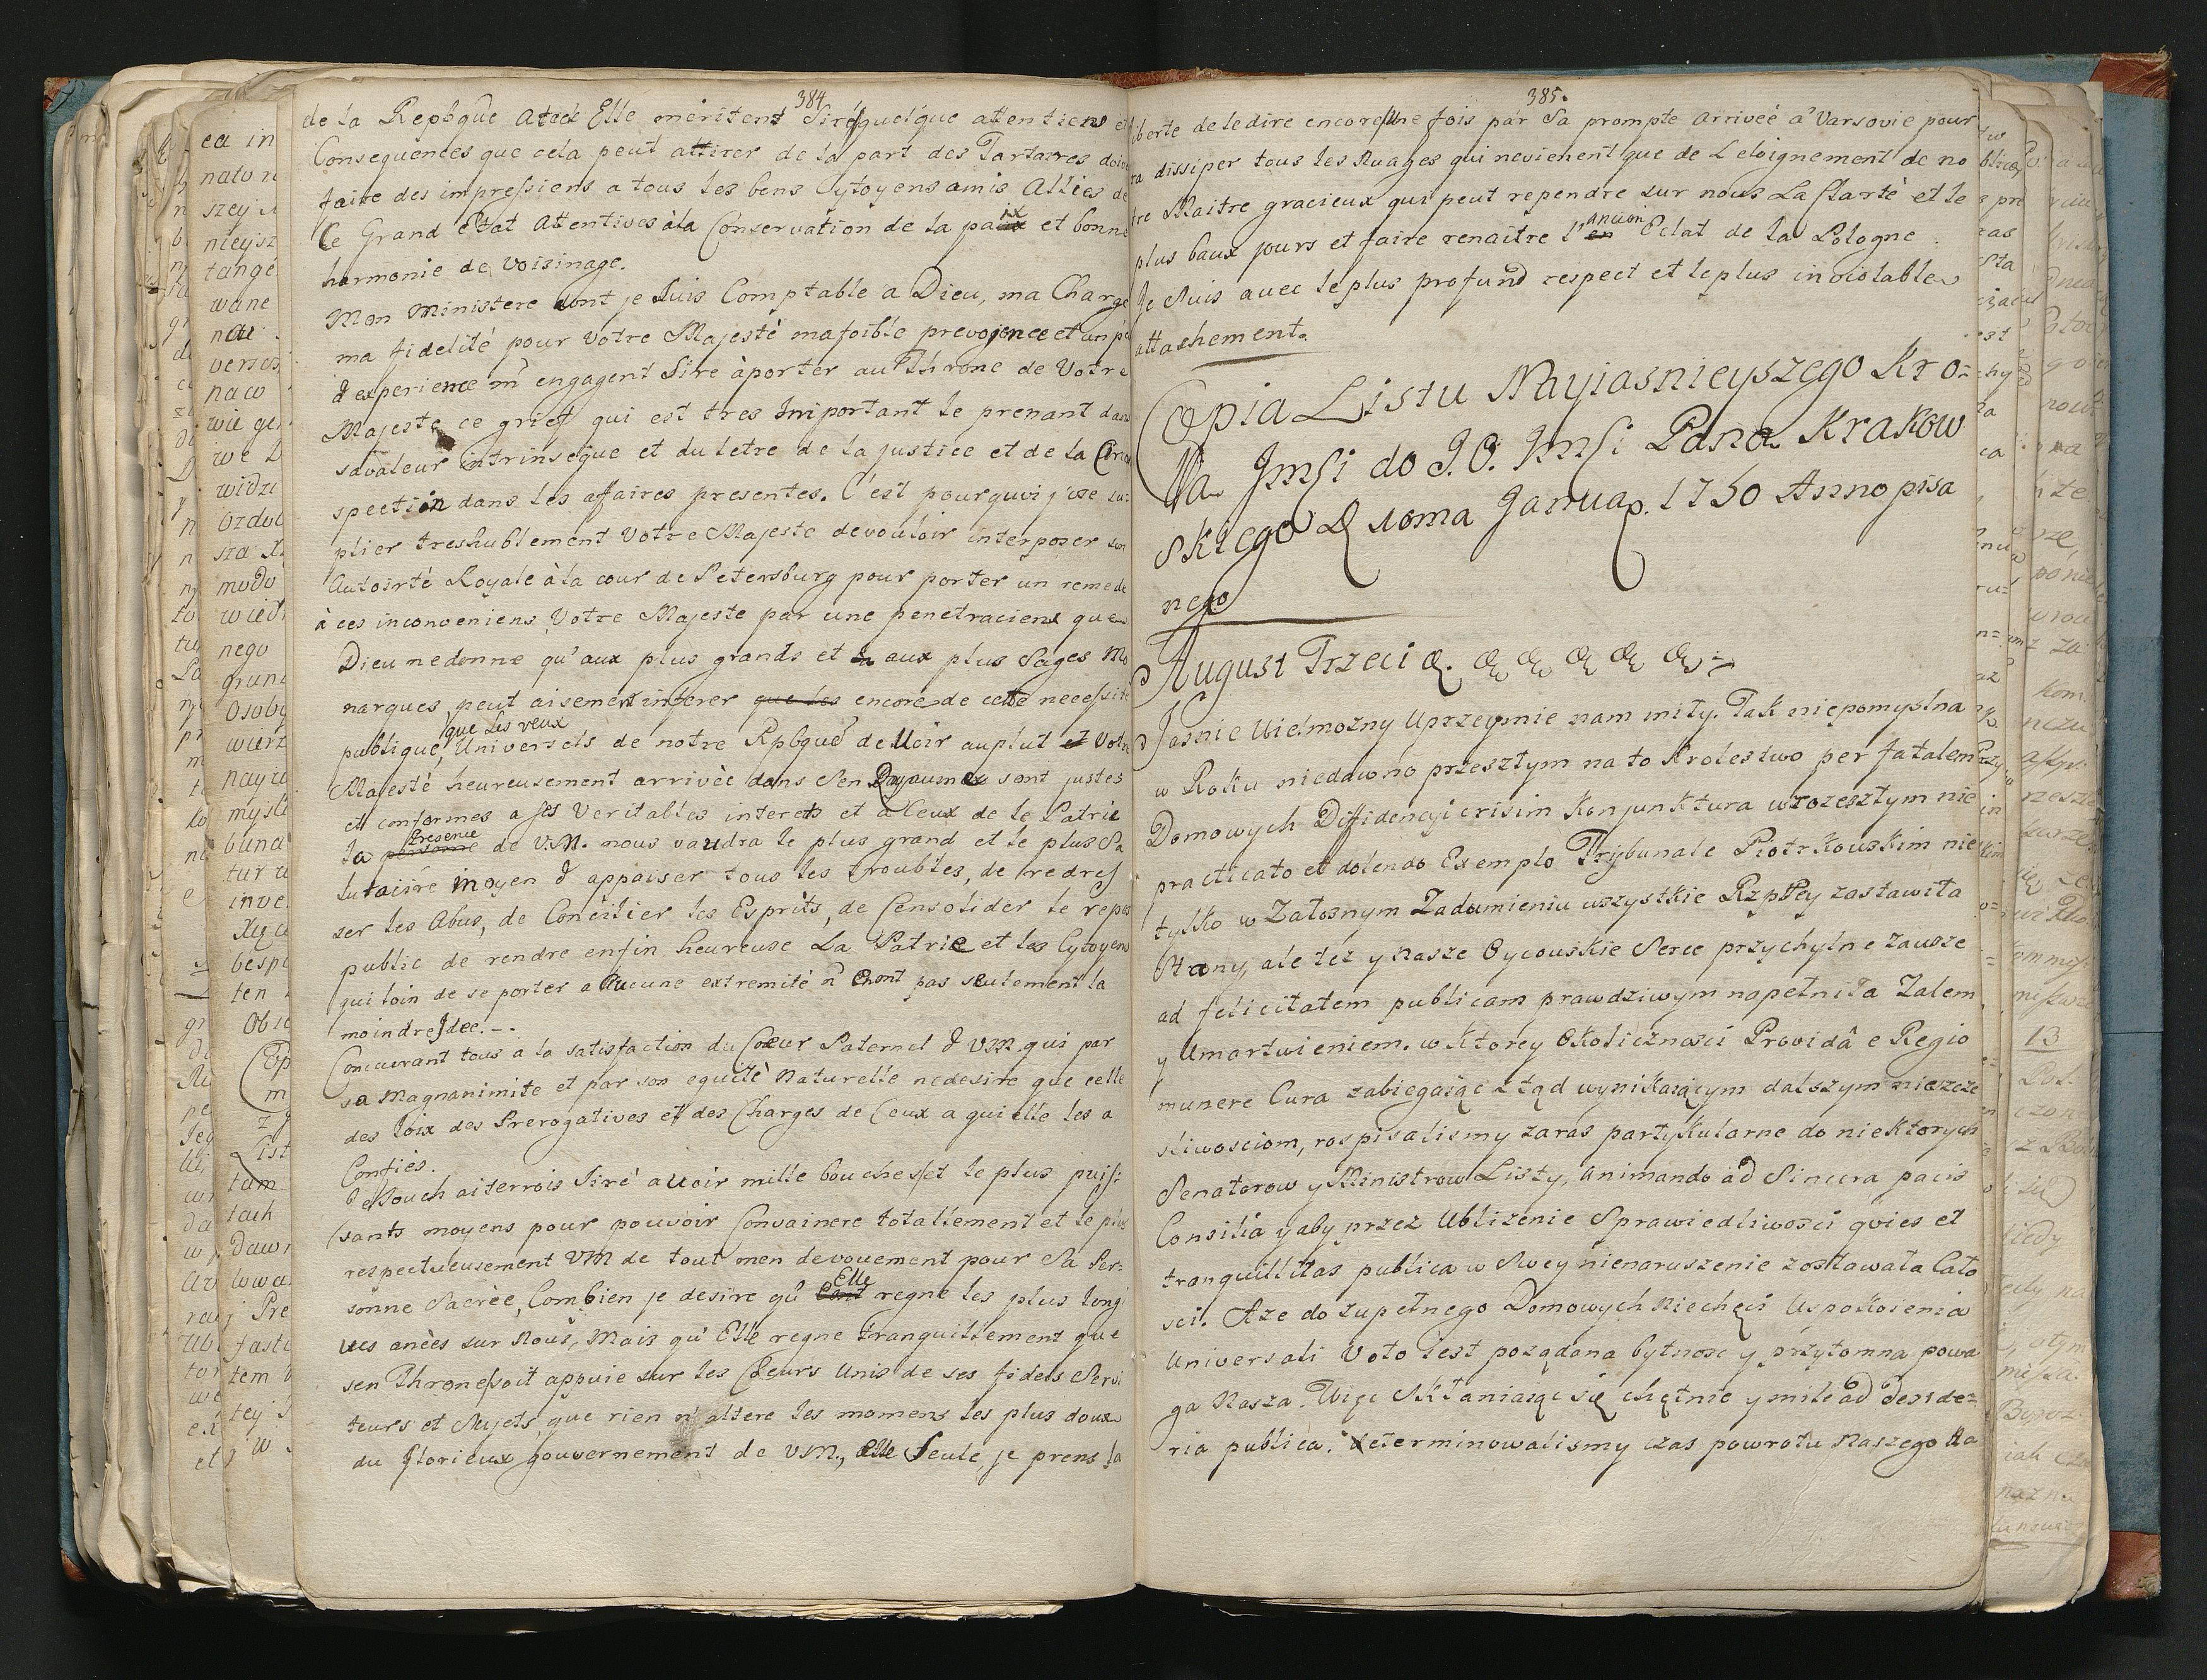 384
de la Repbque Elle meritent Sire quelque attentions et
Consequences que cela peut attirer de la part des Tartares doiv
faite des impressions a tous les bons Cytoyens amis Allies de
Ce Grand etat Attentives à la Conservation de la paix et bonne
harmonie de Voisinage.
Mon Ministere dont je suis Comptable a Dieu, ma Charge
ma fidelité pour Votre Majestè ma foible prevojence et un pe
d'experience m'engagent Sire àporter au Throne de Votre
Majeste ce grief qui est tres Important le prenant dans
savaleur intrinseque et du letre de la justice et de la Circo
spection dans les affaires presentes. C'est pourquoi j'ose su=
plier treshublement Votre Majeste devouloir interposer son
Autoirté Royale àla cour de Petersburg pour porter un remede
à ces inconveniens, Votre Majeste par une penetracient que
Dieu nedonne qu'aux plus grands et aux plus Sages Mo
narques, peut aisement inferer que les encore de cette necessité
que Les veux
publique, Universels de notre Rpbque de Uoir auplut et Votre
Majesté heureusement arrivèe dans Son Royaumes sont justes
et conformes a ses Veritables interets et a Ceux de le Patrie
Presence
la personne de V.M. nous vaudra le plus grand et le plus Sa
lutaiire moyen d'appaiser tous les troubles, de redres
ser les Abus, de Concilier les Esprits, de Consolider le repos
public de rendre enfin heureuse La Patrie et les Cytoyens
qui loin de se porter a Aucune extremité n'enont pas seulement la
moindre Idee. -.
Concurant tous a la satisfaction du Cœur Paternel d VM. qui par
sa Magnanimite et par son equité Naturelle nedesire que celle
des loix des Prerogatives et des Charges de Ceux a qui elle les a
Confiès.
Je Souch aiterrois Siré auoir mille bouches et le plus puis
sants moyens pour pouvoir Convaincre totallement et le plus
respectueusement VM de tout mon devouement pour Sa Per=
sonne Sacrèe, Combien je desire qu' Elle regne les plus longi
ues anèes sur Nous, Mais qu' Elle regne tranquillement que
son Throne soit appuie sur les Coeurs Unis de ses fidels Servi
teurs et Sujets, que rien n'altere les momens les plus doux
du Glorieux gouvernement de VM., elle Seule, je prens la
385.
liberte de ledire encore Une fois par Sa prompte arrivéé a' Varsovie pour
ra dissiper tous les Nuages qui nevienent que de L'eloignement de no
tre Maitre gracieux qui peut rependre sur nous La Clarté et le
plus baux jours et faire renaitre l'ancien Eclat de la Pologne
Je Suis avec le plus profund respect et le plus inviolable
attachement.
Copia Listu Nayiasnieyszego Kro=
la Jmsi do J.O. Jmsi Pana Krakow
skiego D 10ma Januar. 1750 Anno pisa
nego
August Trzeci &. & & & & &
Jasnie Wielmozny Uprzeymie nam mity. Tak niepomyslna
w Roku niedawno przesztym na to Krolestwo per fatalem
Domowych Diffidencyi crisim Konjunktura wrozesztym nie
practicato et dolendo Exemplo Trybunale Piotrkowskim nie
tylko w Zatosnym Zadumieniu wszystkie Rzpltey zastawita
Strony, ale tez y Nasze Oycouskie Serce przychylne Zawsze
ad felicitatem publicam prawdziwym napetnita Zalem
y Umartwieniem. w Ktorey Okolicznosci Providâ e Regio
munere Cura zabiegaiąc ztąd wynikaiącym dalszym nieszcze
sliwosciom, rospisalismy zaras partykularne do niektorych
Senatorow y Ministrow Listy, animando ad Sincera pacis
Consilia y aby przez Ublizenie Sprawiedliwosci qvies et
tranquillitas publica w Swey nienaruszenie zostawata Cato
sci. Aze do zupełnego Domowych Niechęci Uspokoienia
Universali Voto iest pozadana bytnosc y przytomna powa
ga Nasza. Więc Skłaniaiąc się chętnie y mile ad deside=
ria publica. determinowalismy czas powrotu Naszego na